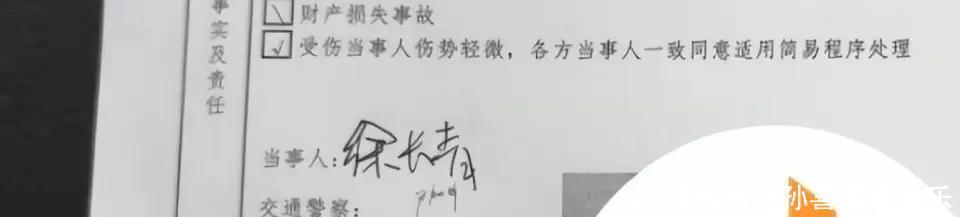 事实及责任
财产损失事故
✓ 受伤当事人伤势轻微，各方当事人一致同意适用简易程序处理
当事人：徐长青
交通警察：
孙
乐